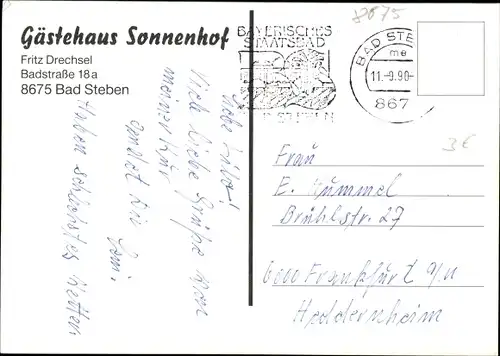 Gästehaus Sonnenhof
Fritz Drechsel
Badstraße 18a
8675 Bad Steben
8675
BAYERISCHES
STAATSBAD
BAD STEBEN
BAD STE
me
11.-9.90-
867
3€
Liebe
Viele liebe Grüße von
meiner Kur
sendet Dir
Haben schönstes Wetter
Frau
E. Kummel
Brühlstr. 27
6000 Frankfurt a/M
Heddernheim